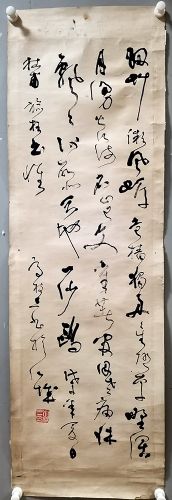 細草微風岸危檣獨夜舟星垂平野闊
月湧大江流名豈文章著官因老病休
飄飄何所似天地一沙鷗 年夏日
杜甫旅夜書懷